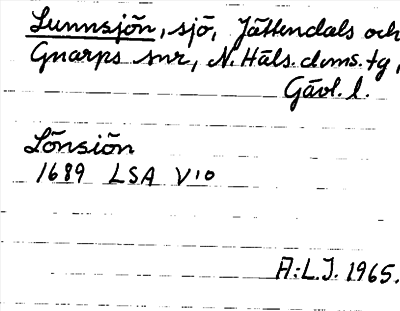 Lunnsjön, sjö, Jättendals och
Gnarps snr, N. Häls. dms. tg,
Gävl. l.
Lönsiön
1689 LSA V10
A:L.J. 1965.